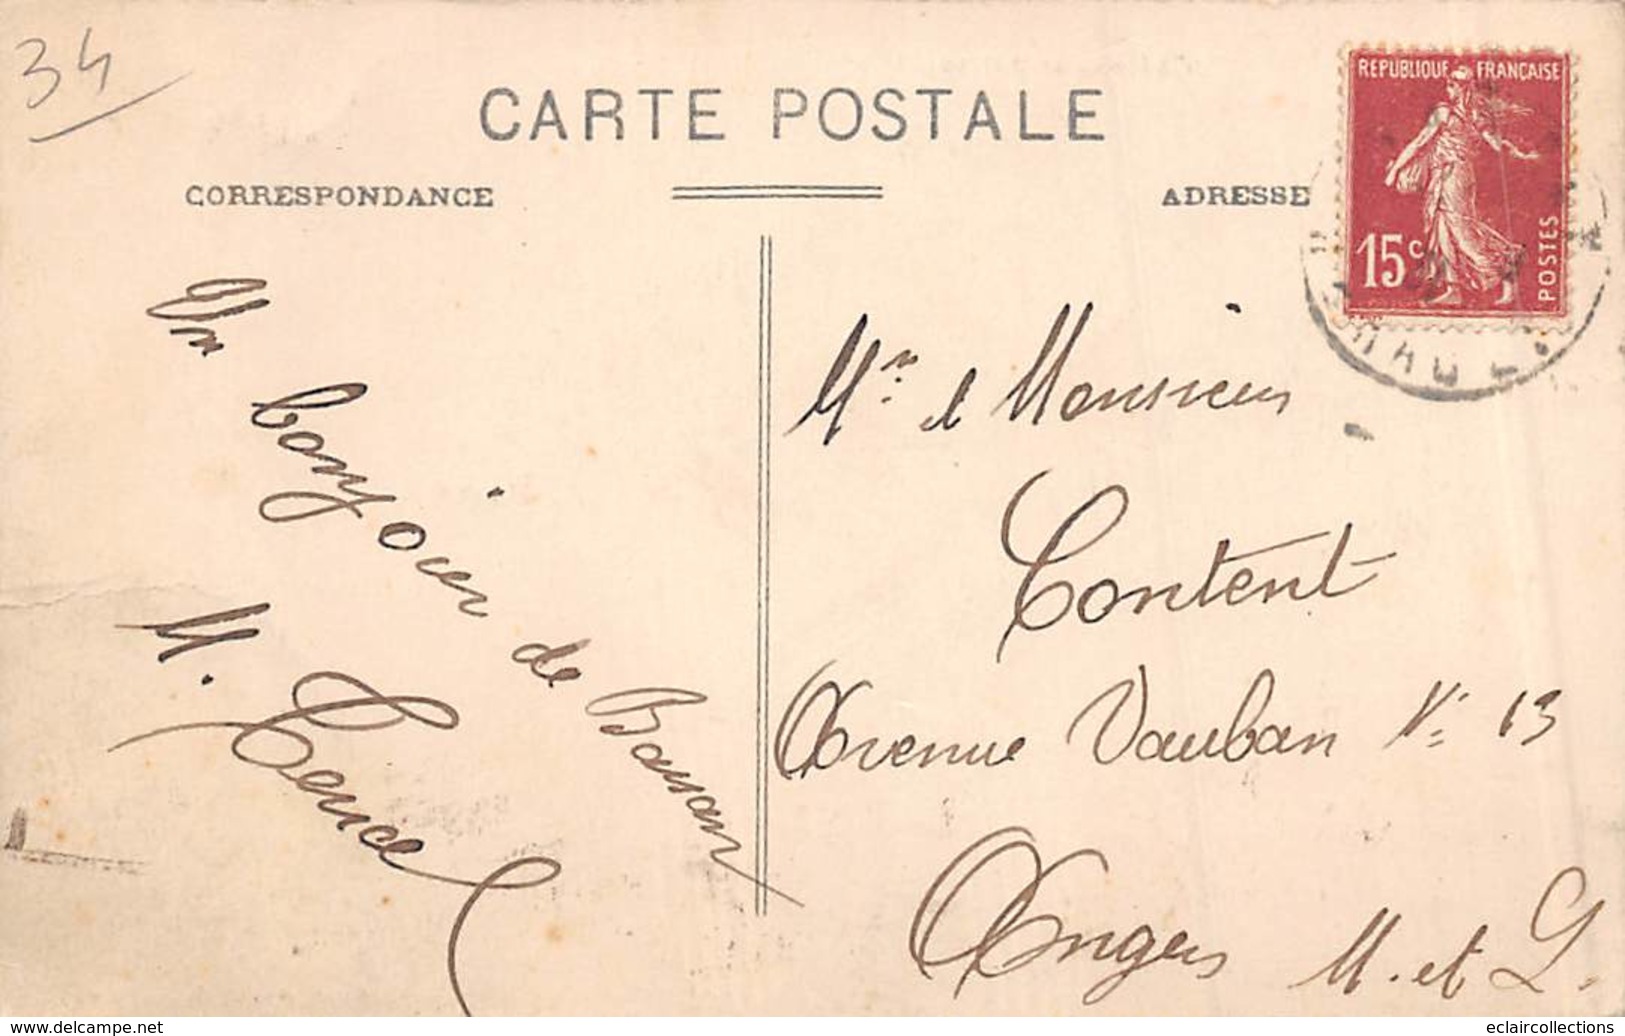 34
CARTE POSTALE
CORRESPONDANCE
ADRESSE
REPUBLIQUE FRANÇAISE
15c
POSTES
Un bonjour de Bassan
M.
Mr. et Monsieur
Content
Avenue Vauban N: 13
Angers M. et L.
www.delcampe.net
eclaircollections